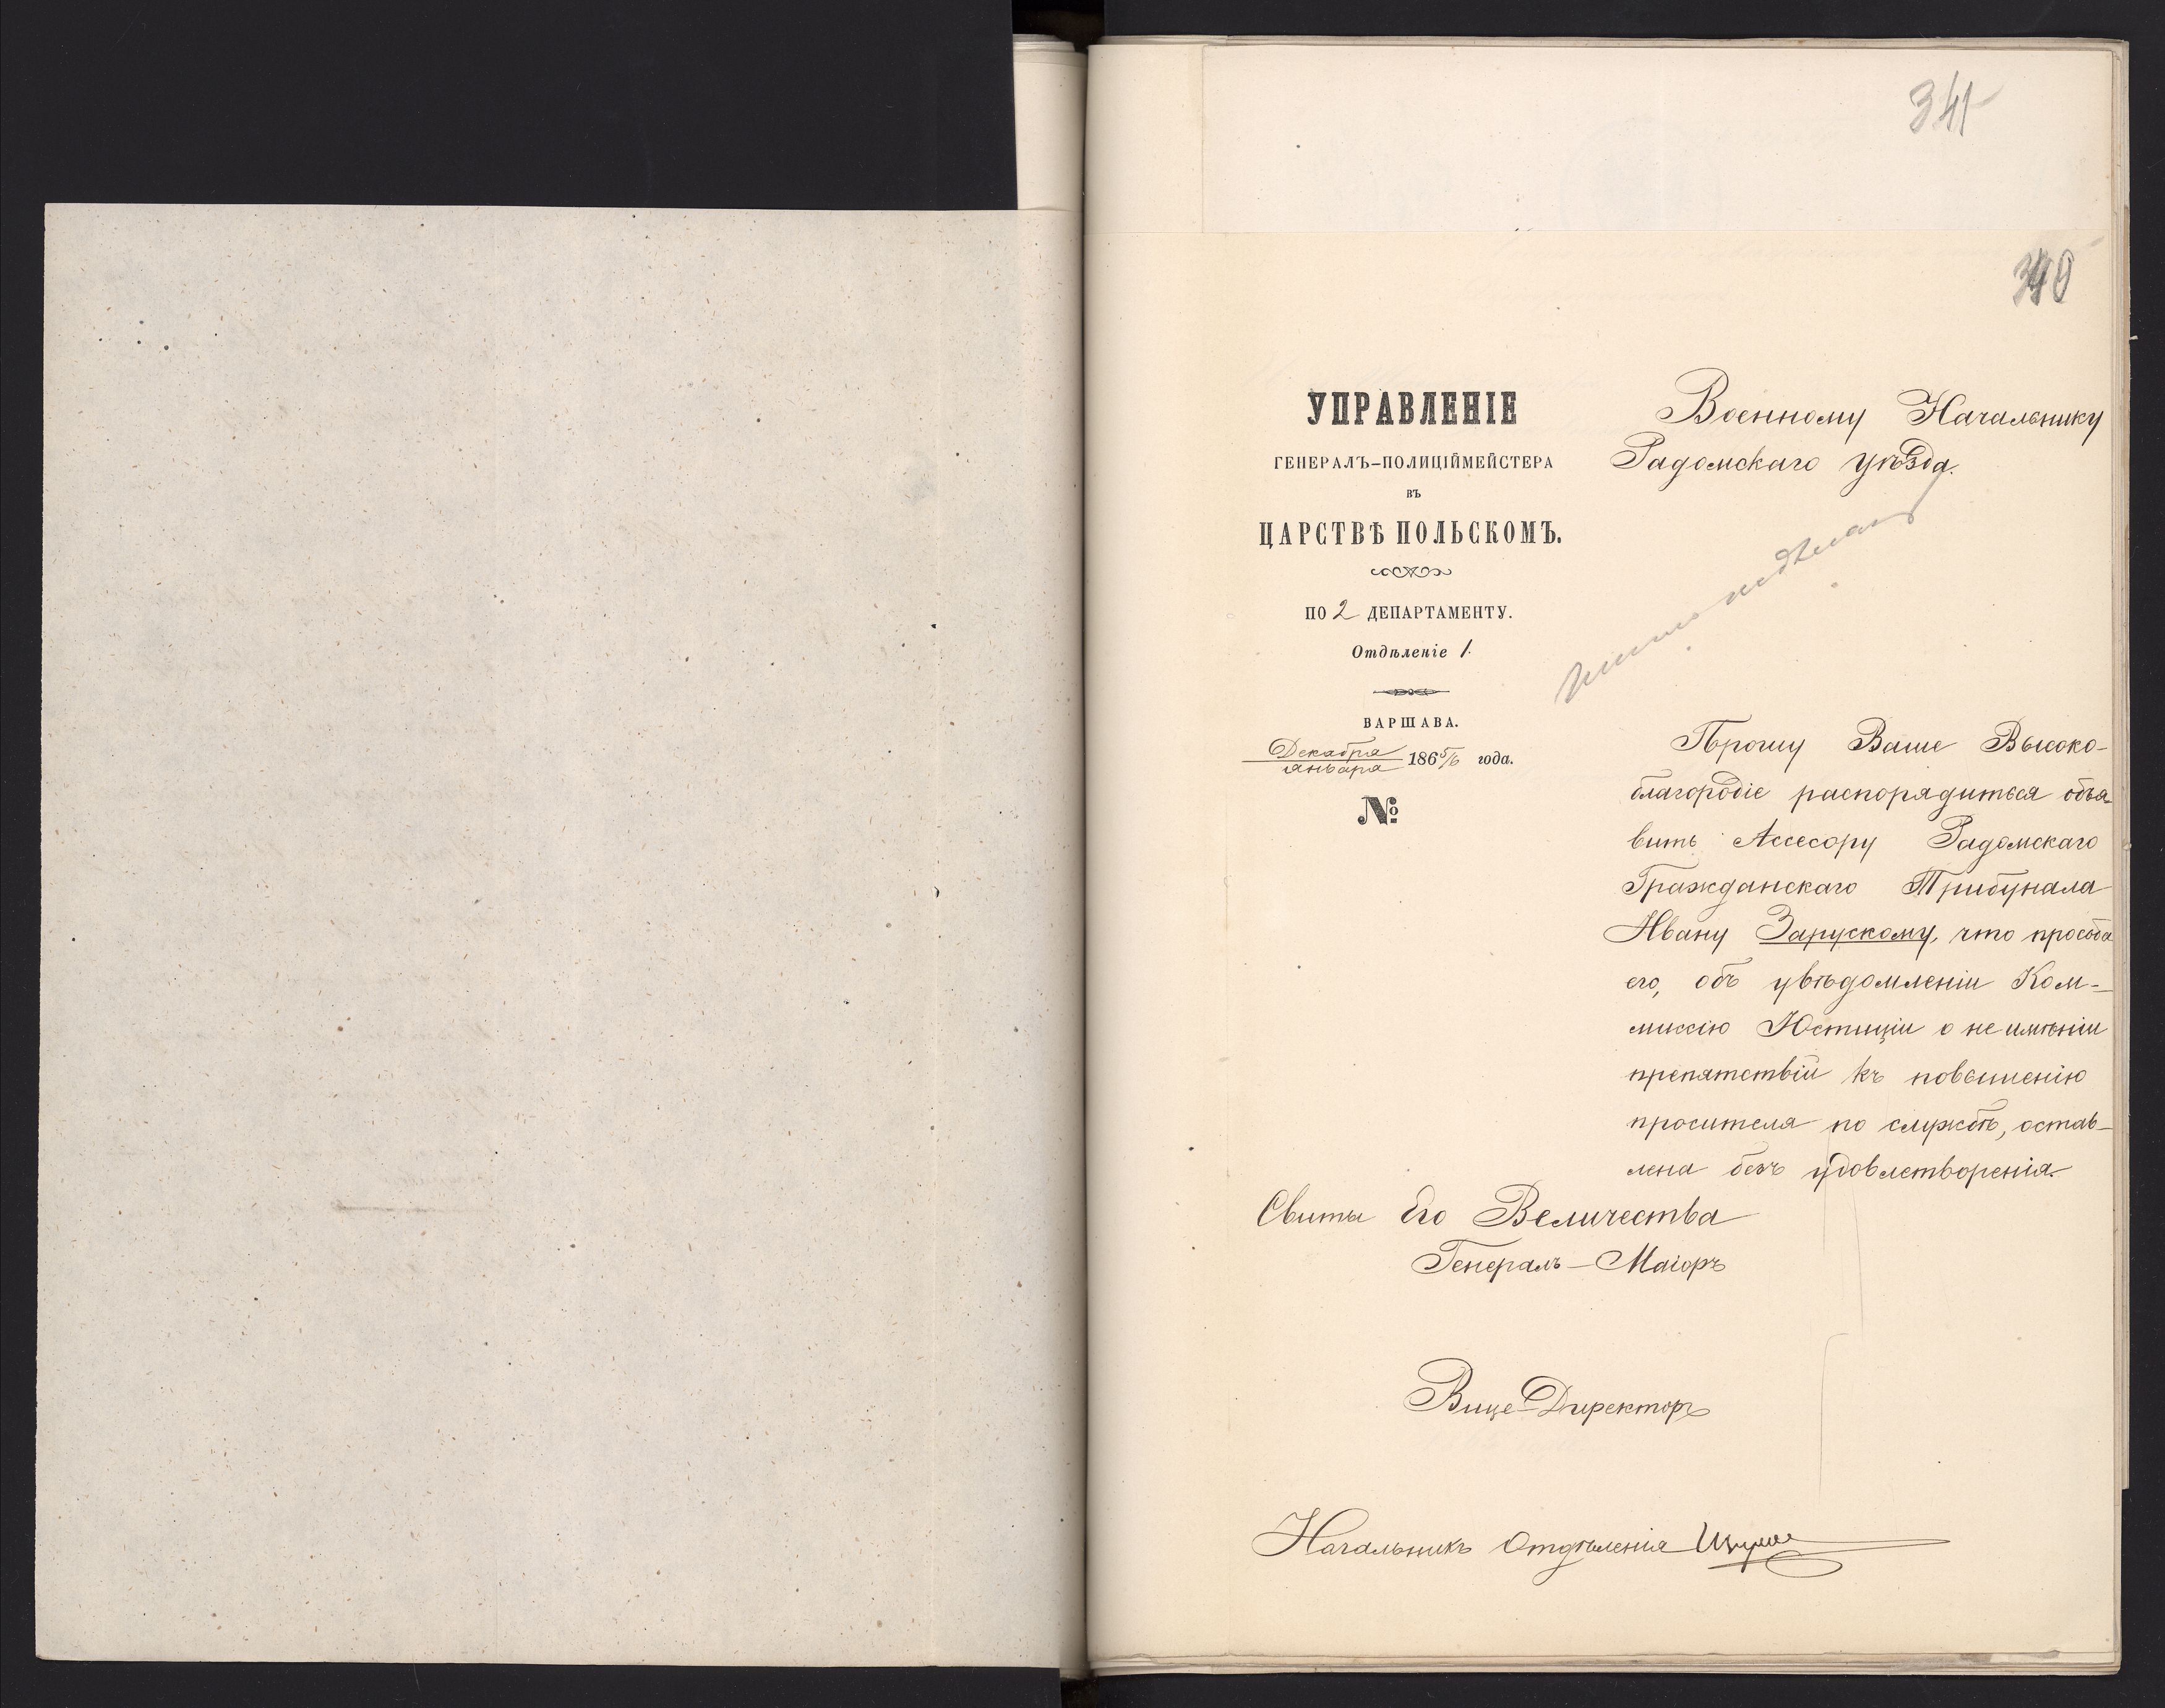 341
340
УПРАВЛЕНІЕ
ГЕНЕРАЛЪ-ПОЛИЦІЙМЕЙСТЕРА
ВЪ
ЦАРСТВѢ ПОЛЬСКОМЪ.
ПО 2 ДЕПАРТАМЕНТУ.
Отдѣленіе 1.
ВАРШАВА.
Декабря
Января 1865/6 года.
№
Военному Начальнику
Радомскаго Уѣзда.
Прошу Ваше Высоко-
благородіе распорядиться объя-
вить Ассесору Радомскаго
Гражданскаго Трибунала
Ивану Зарускому, что просьба
его, объ увѣдомленіи Ком-
миссію Юстиціи о не имѣніи
препятствій къ повышенію
просителя по службѣ, остав-
лена безъ удовлетворенія.
Свиты Его Величества
Генералъ-Маіоръ
Вице-Директоръ
Начальникъ Отдѣленія